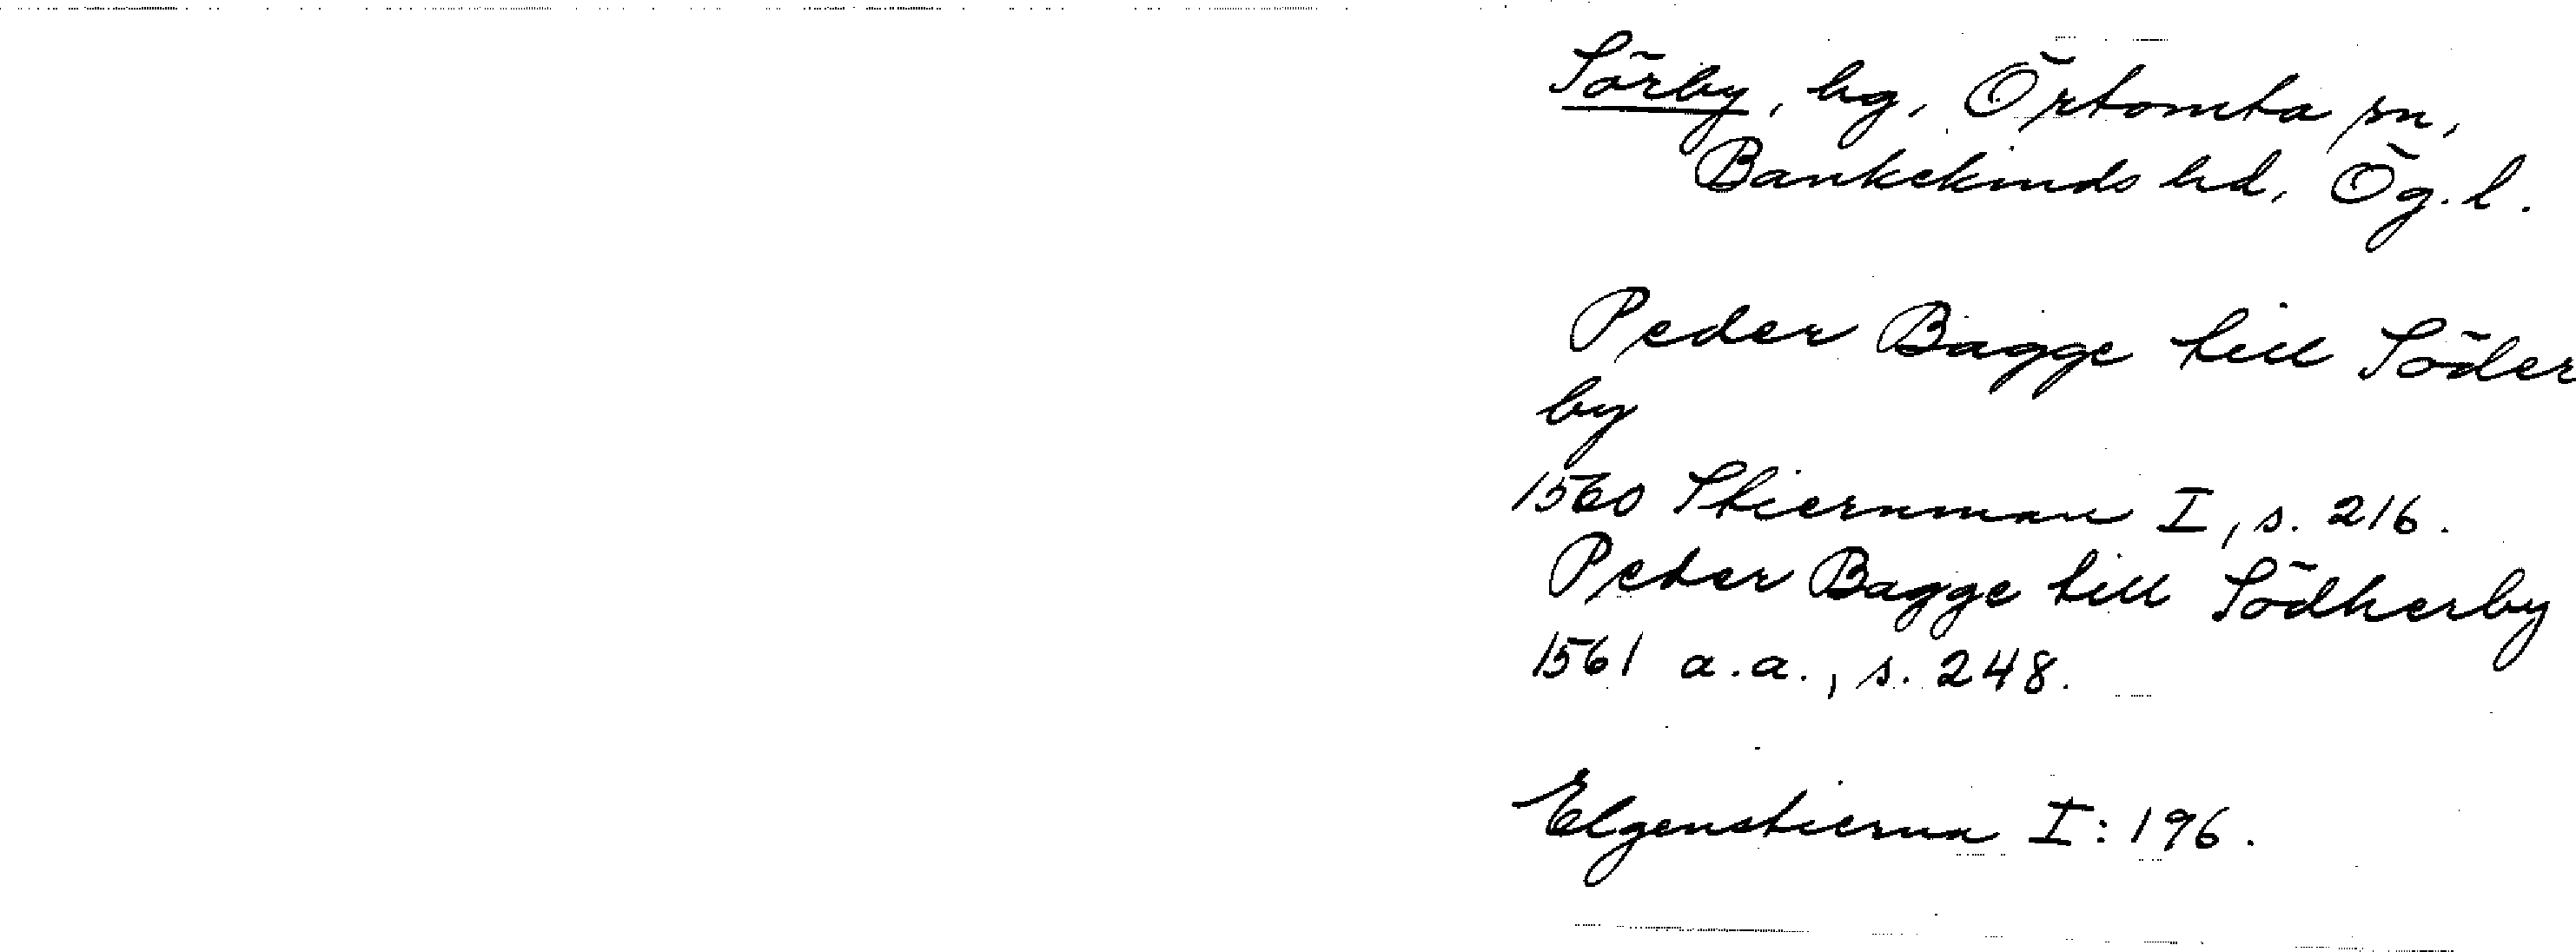 Sörby, hg, Örtomta sn,
Bankekinds hd, Ög. l.
Peder Bagge till Söder
by
1560 Stiernman I, s. 216.
Peter Bagge till Södherby
1561 a.a., s. 248.
Elgenstierna I: 196.